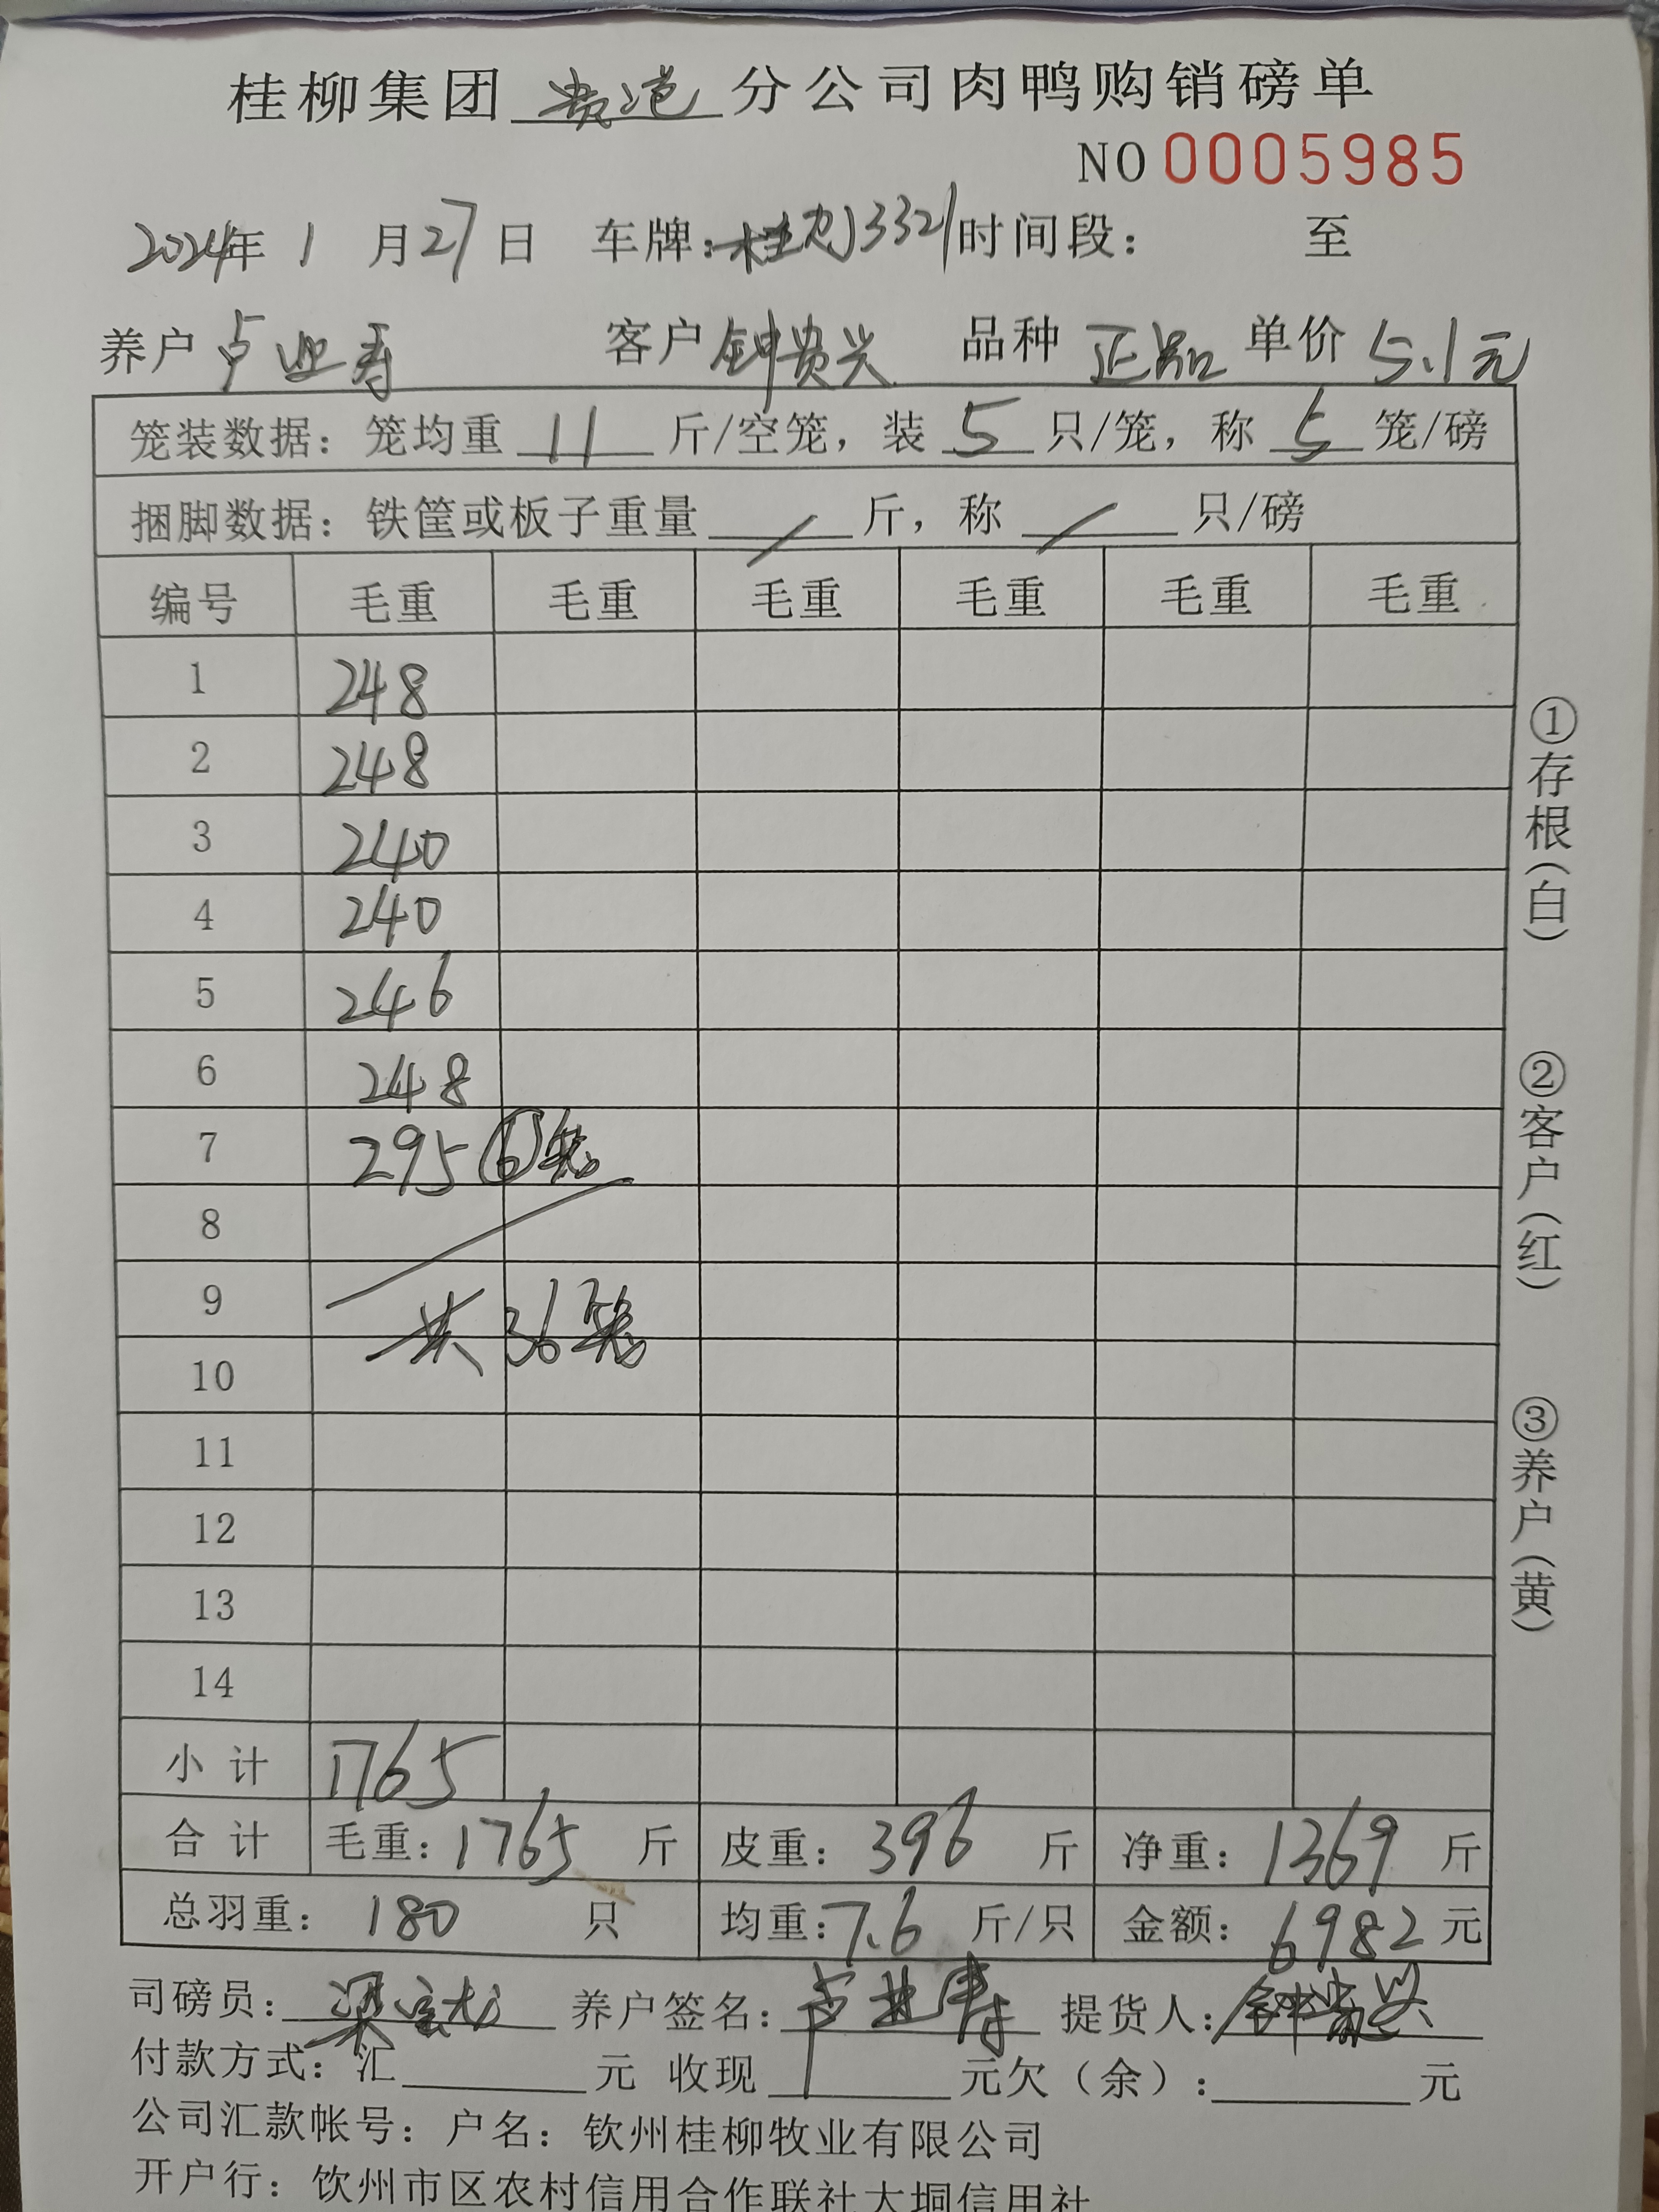 桂柳集团 贵港 分公司肉鸭购销磅单
NO 0005985
2024年 1 月 27 日 车牌: 桂 3321 时间段: 至
养户 卢业寿 客户 钟贵兴 品种 正品 单价 5.1元
笼装数据: 笼均重 11 斤/空笼, 装 5 只/笼, 称 5 笼/磅
捆脚数据: 铁筐或板子重量 / 斤, 称 / 只/磅
编号 毛重 毛重 毛重 毛重 毛重 毛重
1 248
2 248
3 240
4 240
5 246
6 248
7 295 ⑥笼
8
9 共36笼
10
11
12
13
14
小计 1765
合计 毛重: 1765 斤 皮重: 396 斤 净重: 1369 斤
总羽重: 180 只 均重: 7.6 斤/只 金额: 6982 元
司磅员: 梁 养户签名: 卢业寿 提货人: 钟贵兴
付款方式: 汇 元 收现 元欠(余): 元
公司汇款帐号: 户名: 钦州桂柳牧业有限公司
开户行: 钦州市区农村信用合作联社大垌信用社
①存根(白)
②客户(红)
③养户(黄)